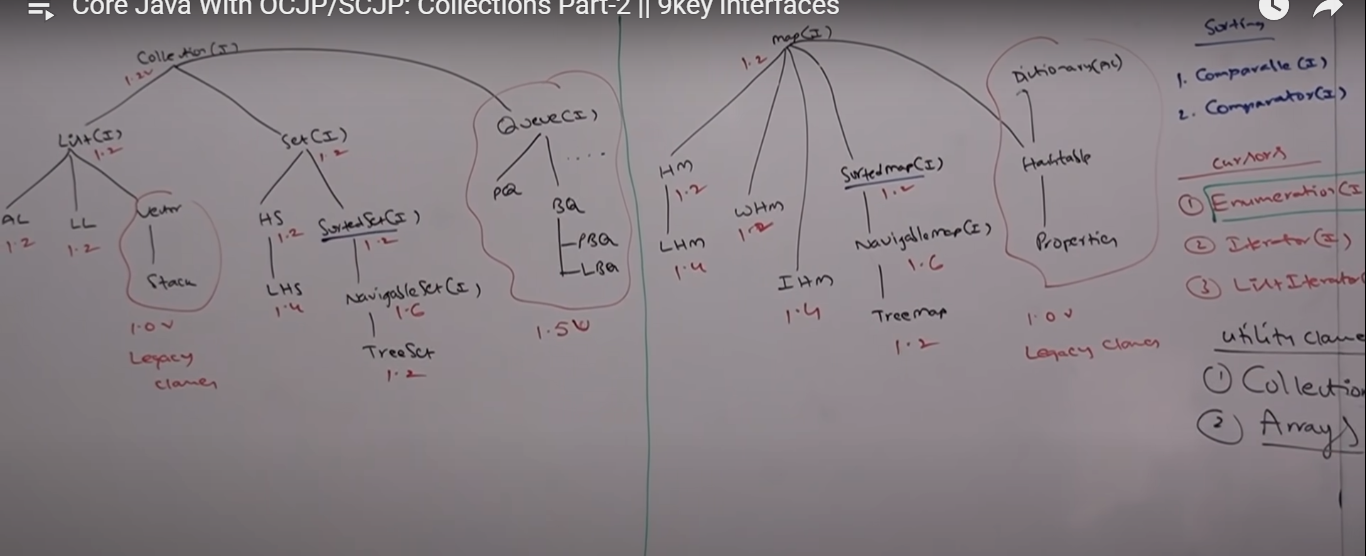 Core Java With OCJP/SCJP: Collections Part-2 || 9key Interfaces
Collection(I)
1.2v
List(I)
1.2
AL
1.2
LL
1.2
Vector
Stack
1.0 v
Legacy
classes
Set(I)
1.2
HS
1.2
LHS
1.4
SortedSet(I)
1.2
NavigableSet(I)
1.6
TreeSet
1.2
Queue(I)
....
PQ
BQ
PBQ
LBQ
1.5 v
map(I)
1.2
HM
1.2
LHM
1.4
WHM
1.2
IHM
1.4
Sortedmap(I)
1.2
Navigablemap(I)
1.6
Treemap
1.2
Dictionary(AC)
Hashtable
Properties
1.0 v
Legacy classes
Sorting
1. Comparable (I)
2. Comparator(I)
Cursors
① Enumeration(I
② Iterator(I)
③ ListIterator
utility classe
① Collection
② Arrays